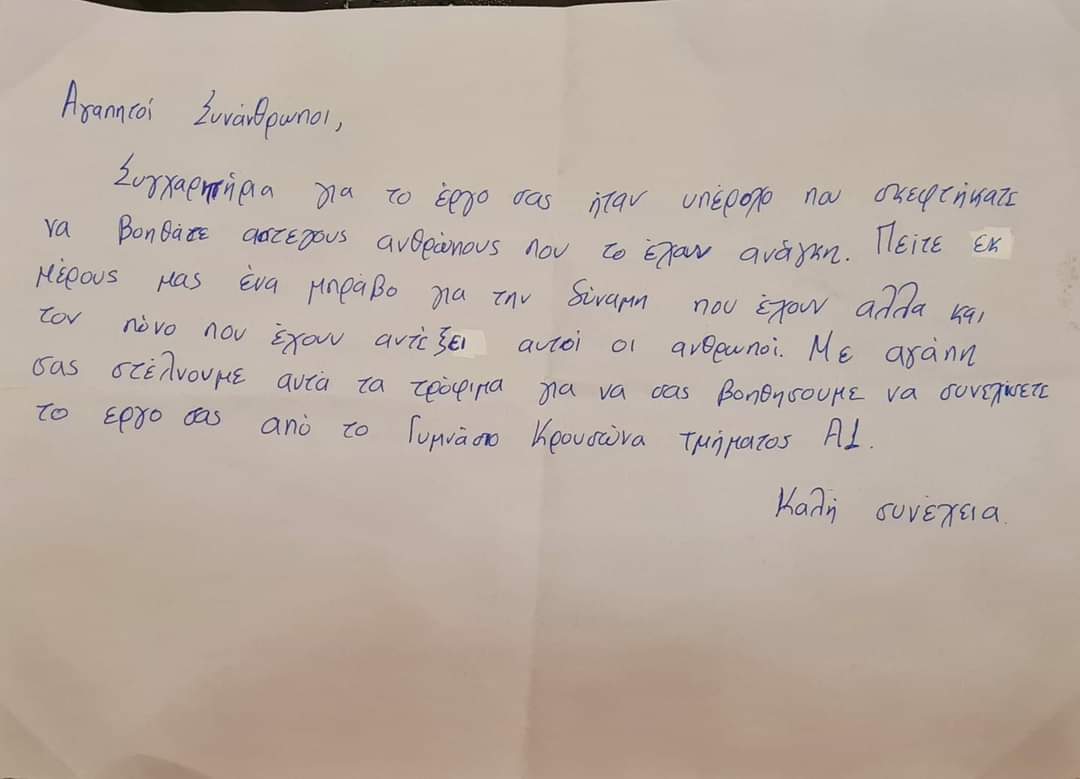 Αγαπητοί Συνάνθρωποι,
Συγχαρητήρια για το έργο σας ήταν υπέροχο που σκεφτήκατε
να βοηθάτε αστεγους ανθρώπους που το έχουν ανάγκη. Πείτε εκ
μέρους μας ένα μπράβο για την δύναμη που έχουν αλλα και
τον πόνο που έχουν αντέξει αυτοί οι ανθρωποί. Με αγάπη
σας στέλνουμε αυτά τα τρόφιμα για να σας βοηθησουμε να συνεχίσετε
το εργο σας από το Γυμνάσιο Κρουσώνα τμήματος Α1.
Καλή συνέχεια.